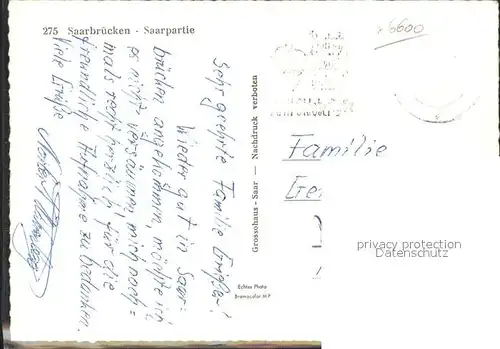 275 Saarbrücken - Saarpartie
Sehr geehrte Familie
Wieder gut in Saar-
brücken angekommen, möchte ich
es nicht versäumen, mich noch=
mals recht herzlich für die
freundliche Aufnahme zu bedanken.
Viele Grüße
Grossohaus - Saar — Nachdruck verboten
Echtes Photo
Bromocolor M P
6600
Familie
privacy protection
Datenschutz